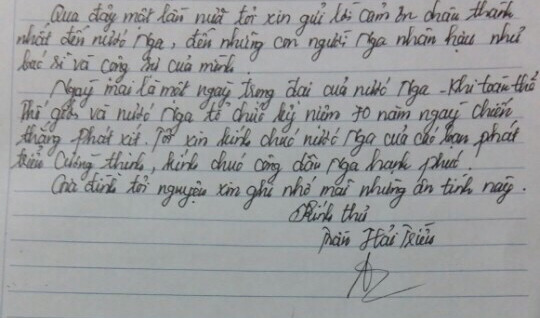 Qua đây một lần nữa tôi xin gửi lời cảm ơn chân thành
nhất đến nước Nga, đến những con người Nga nhân hậu như
bác sĩ và cộng sự của mình
Ngày mai là một ngày trọng đại của nước Nga - Khi toàn thể
thế giới và nước Nga tổ chức kỷ niệm 70 năm ngày chiến
thắng phát xít. Tôi xin kính chúc nước Nga của các bạn phát
triển cường thịnh, kính chúc công dân Nga hạnh phúc.
Gia đình tôi nguyện xin ghi nhớ mãi những ân tình này.
Kính thư
Trần Hải Triều